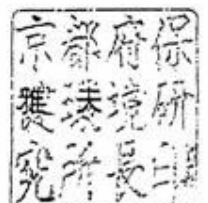 京都府保
健環境研
究所長印
雅夫